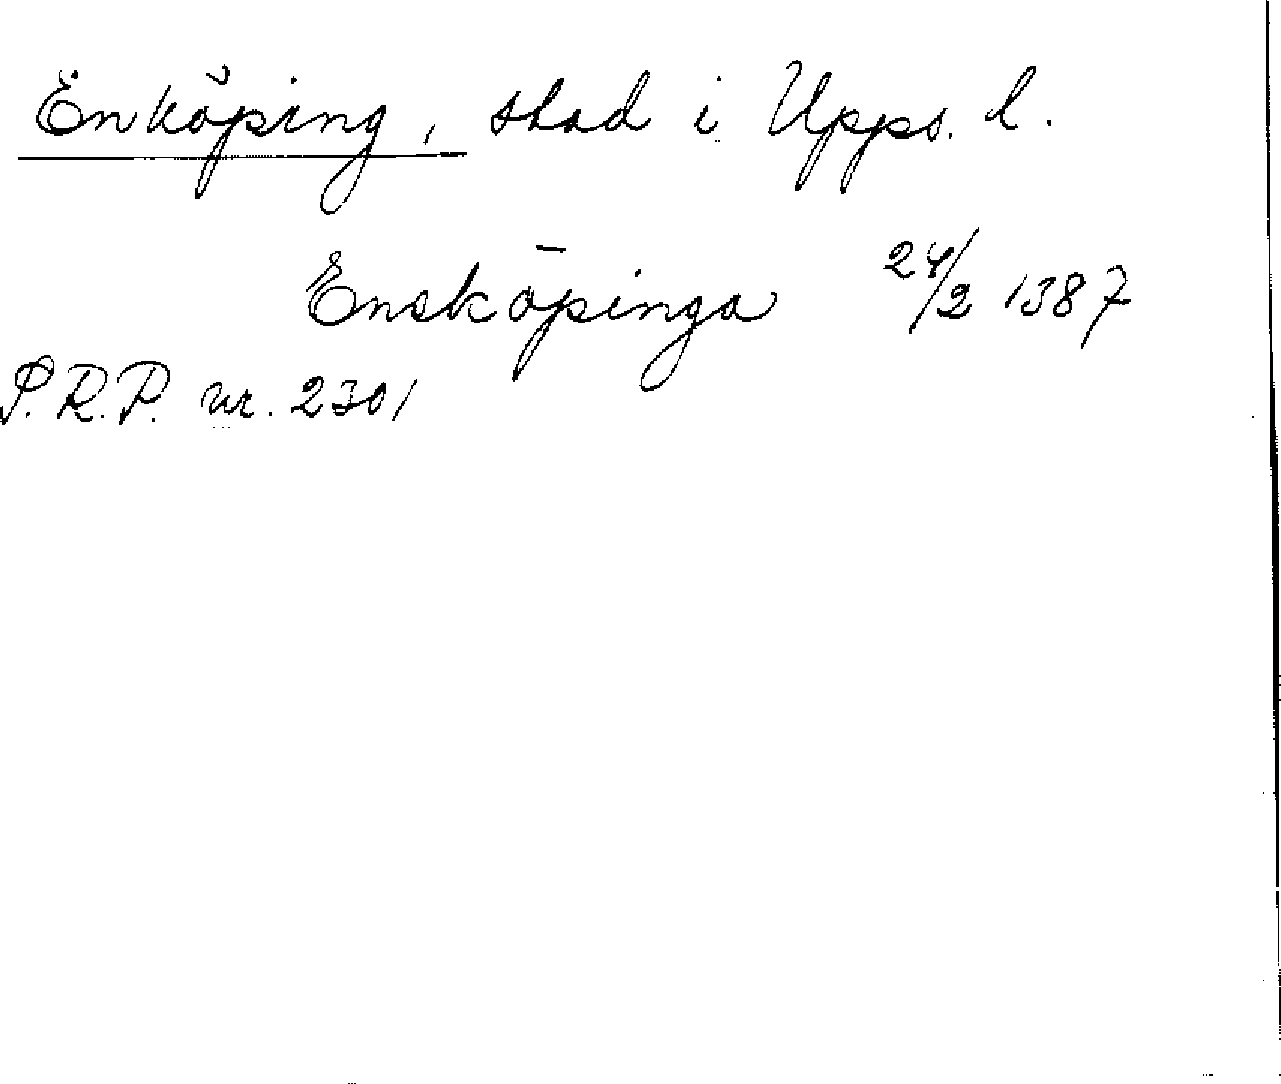 Enköping, stad i Upps. l.
Ensköpinga 24/2 1387
S.R.P. nr. 2301